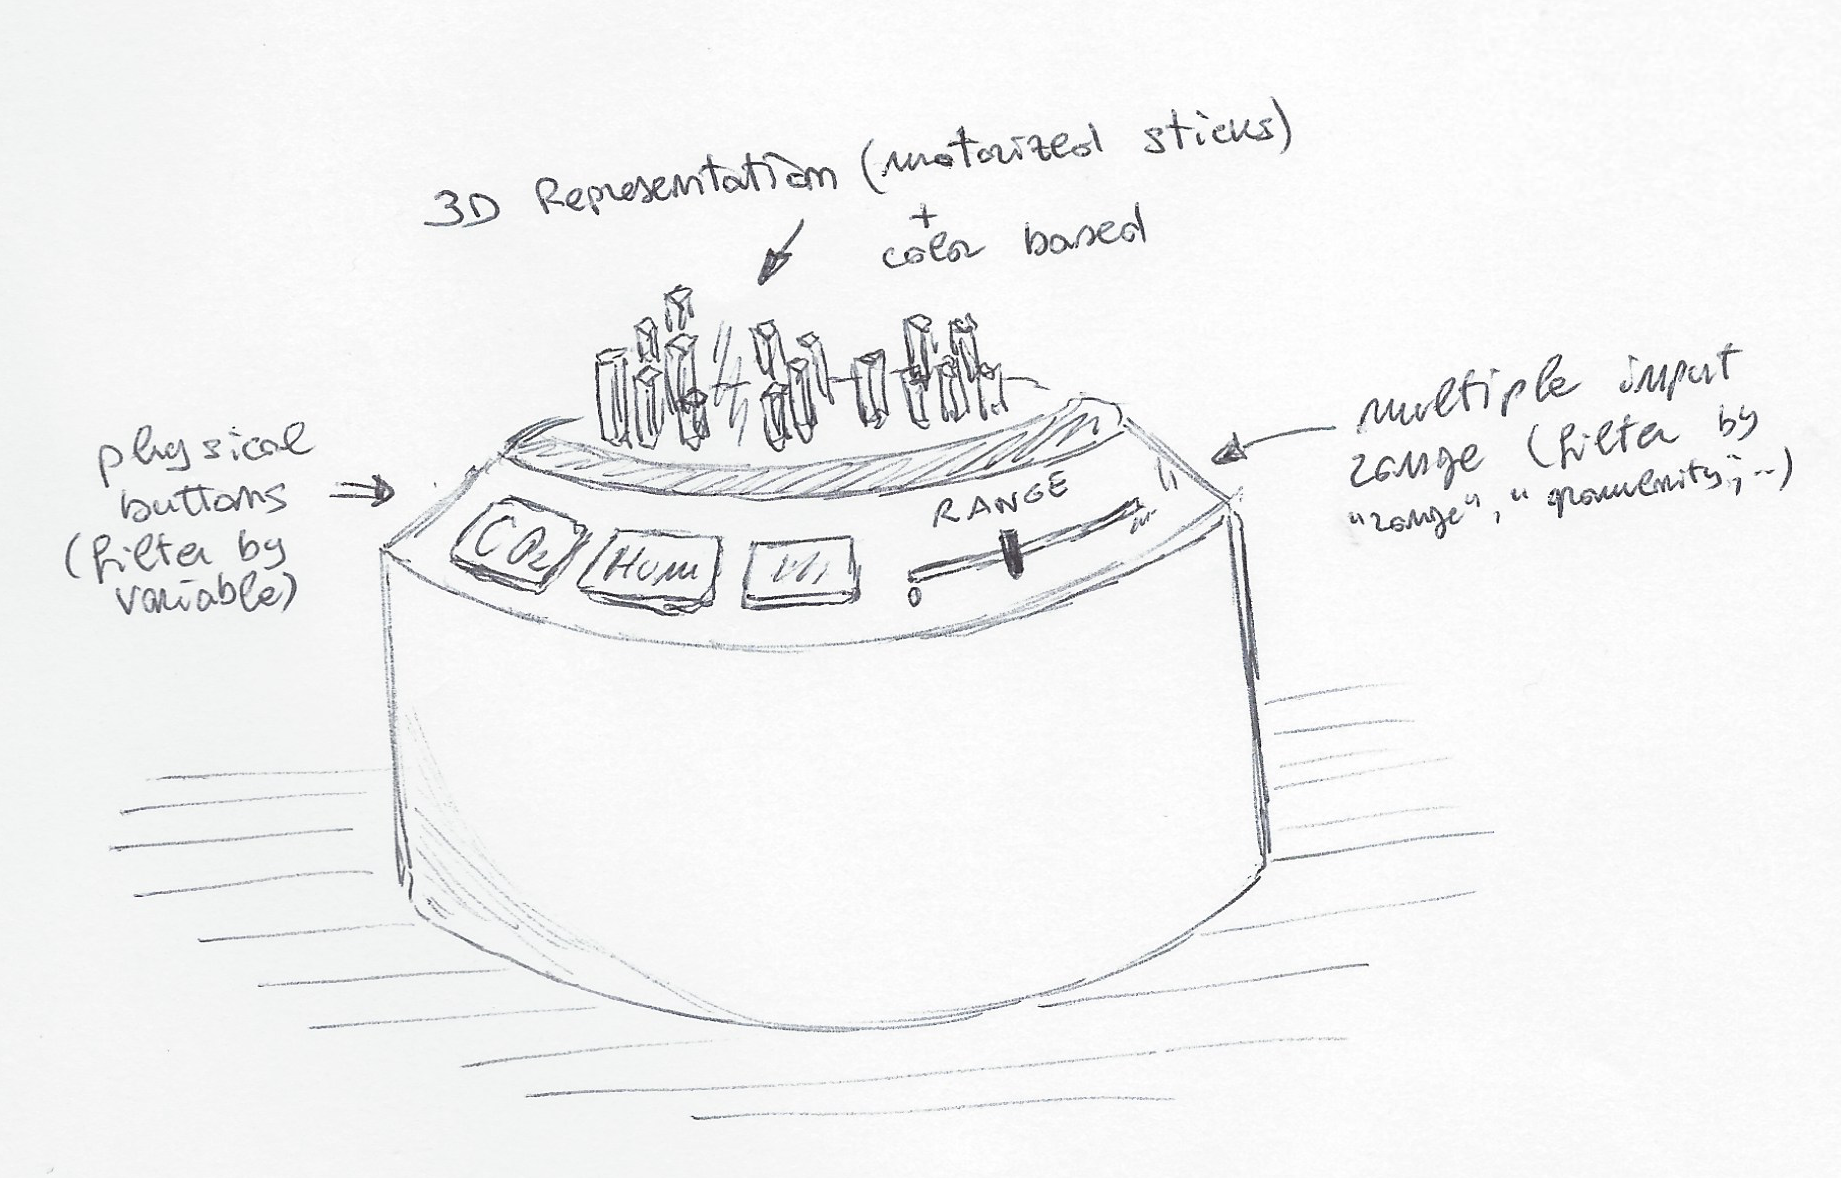 3D Representation (motorized sticks)
+
color based
physical
buttons
(filter by
variable)
multiple input
range (filter by
"range", "granularity", ...)
CO2
Hum
RANGE
0